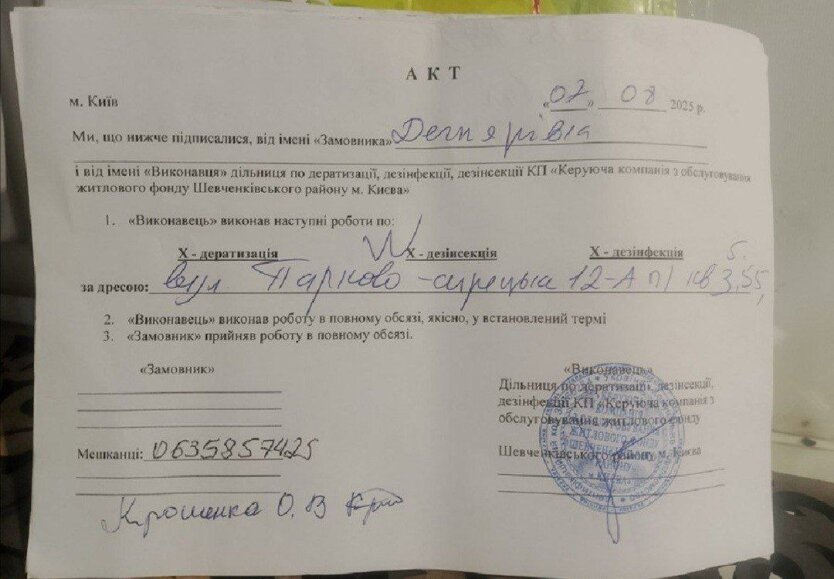 АКТ
м. Київ «07» 08 2025 р.
Ми, що нижче підписалися, від імені «Замовника»
і від імені «Виконавця» дільниця по дератизації, дезінфекції, дезінсекції КП «Керуюча компанія з обслуговування
житлового фонду Шевченківського району м. Києва»
1. «Виконавець» виконав наступні роботи по:
Х - дератизація Х - дезінсекція Х - дезінфекція
за дресою: вул. Парково-сирецька 12-А п/ кв 3, 55,
2. «Виконавець» виконав роботу в повному обсязі, якісно, у встановлений термі
3. «Замовник» прийняв роботу в повному обсязі.
«Замовник» «Виконавець»
Дільниця по дератизації, дезінсекції,
дезінфекції КП «Керуюча компанія з
обслуговування житлового фонду
Шевченківського району м. Києва
Мешканці: 0635857425
О. В